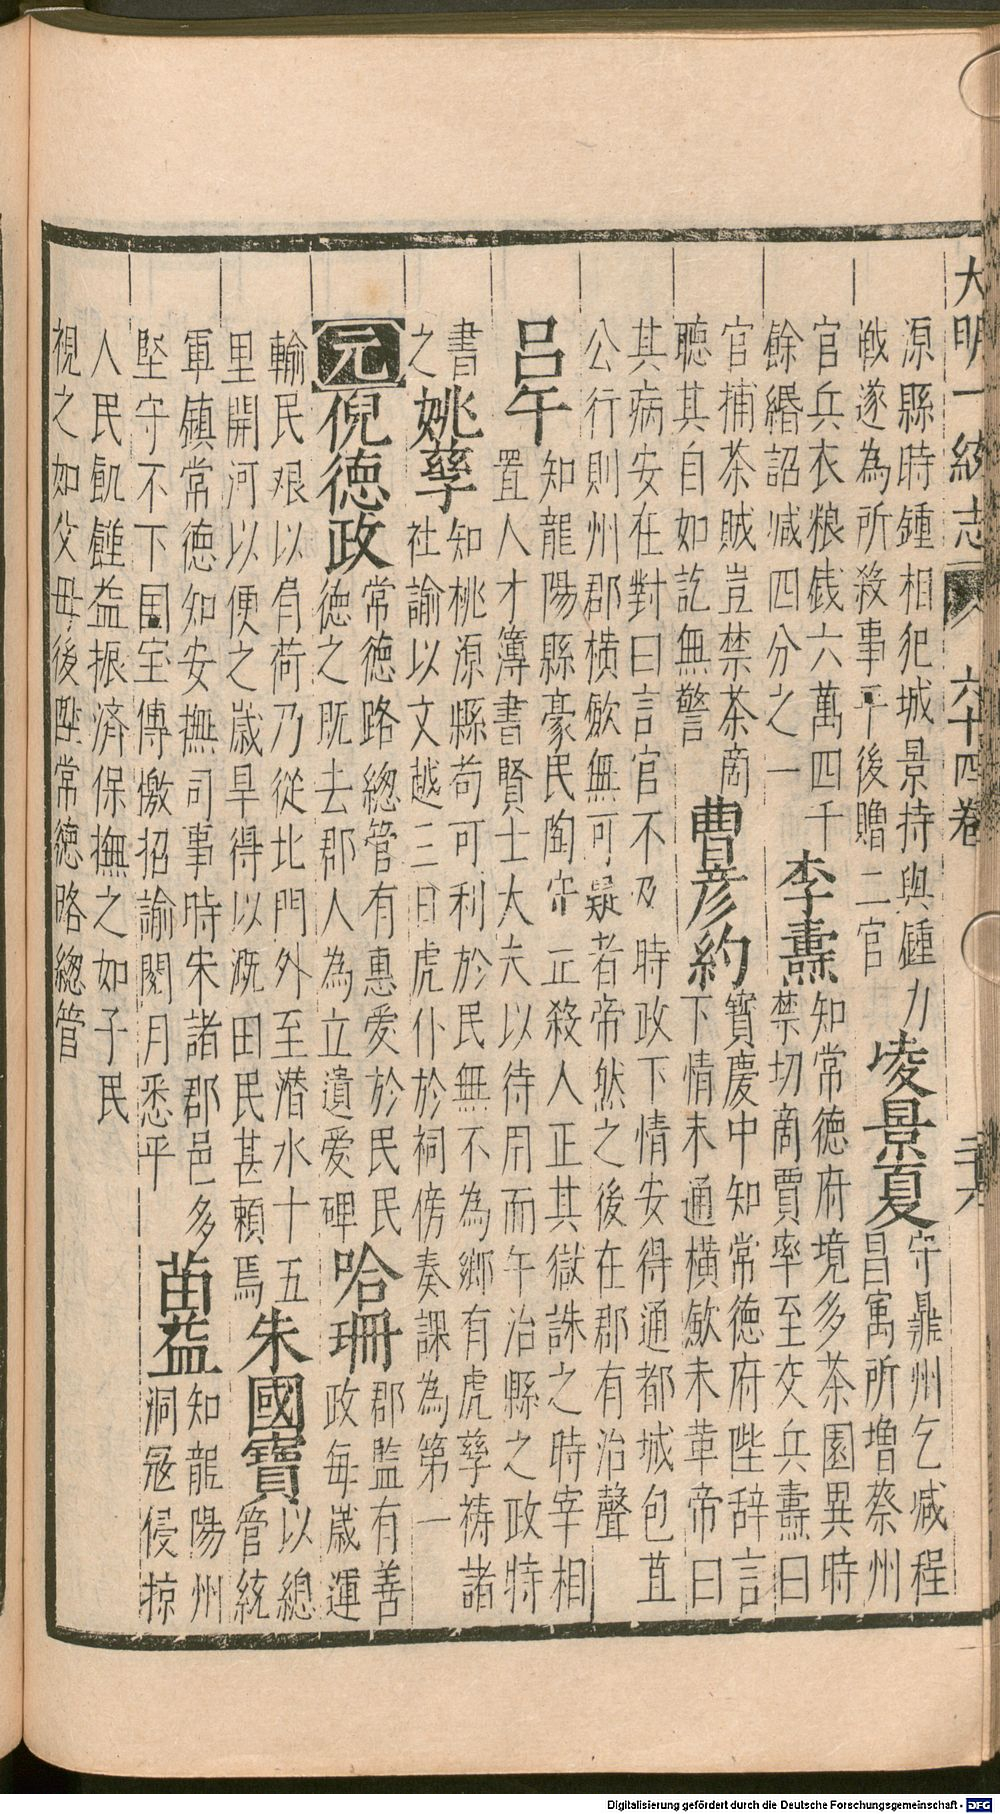 大明一統志 六十四卷
源縣時鍾相犯城景持與鍾力
戰遂為所殺事平後贈二官
凌景夏
守鼎州乞减程
昌寓所增蔡州
官兵衣粮錢六萬四千
餘緡詔减四分之一
李燾
知常德府境多茶園異時
禁切商賈率至交兵燾曰
官捕茶賊豈禁茶商
聽其自如訖無警
曹彥約
寶慶中知常德府陛辞言
下情未通橫歛未革帝曰
其病安在對曰言官不及時政下情安得通都城包苴
公行則州郡橫歛無可疑者帝然之後在郡有治聲
呂午
知龍陽縣豪民陶守正殺人正其獄誅之時宰相
置人才簿書賢士大夫以待用而午治縣之政特
書
之
姚孳
知桃源縣苟可利於民無不為鄉有虎孳禱諸
社諭以文越三日虎仆於祠傍奏課為第一
元
倪德政
常德路總管有惠愛於民民
德之既去郡人為立遺愛碑
哈珊
郡監有善
政每歲運
輸民艰以肩荷乃從北門外至潜水十五
里開河以便之歲旱得以溉田民甚賴焉
朱國寶
以總
管統
軍鎮常德知安撫司事時宋諸郡邑多
堅守不下国宝傳檄招諭閱月悉平
苗益
知龍陽州
洞冦侵掠
人民飢饉益振濟保撫之如子民
視之如父母後陞常德路總管
Digitalisierung gefördert durch die Deutsche Forschungsgemeinschaft - DFG